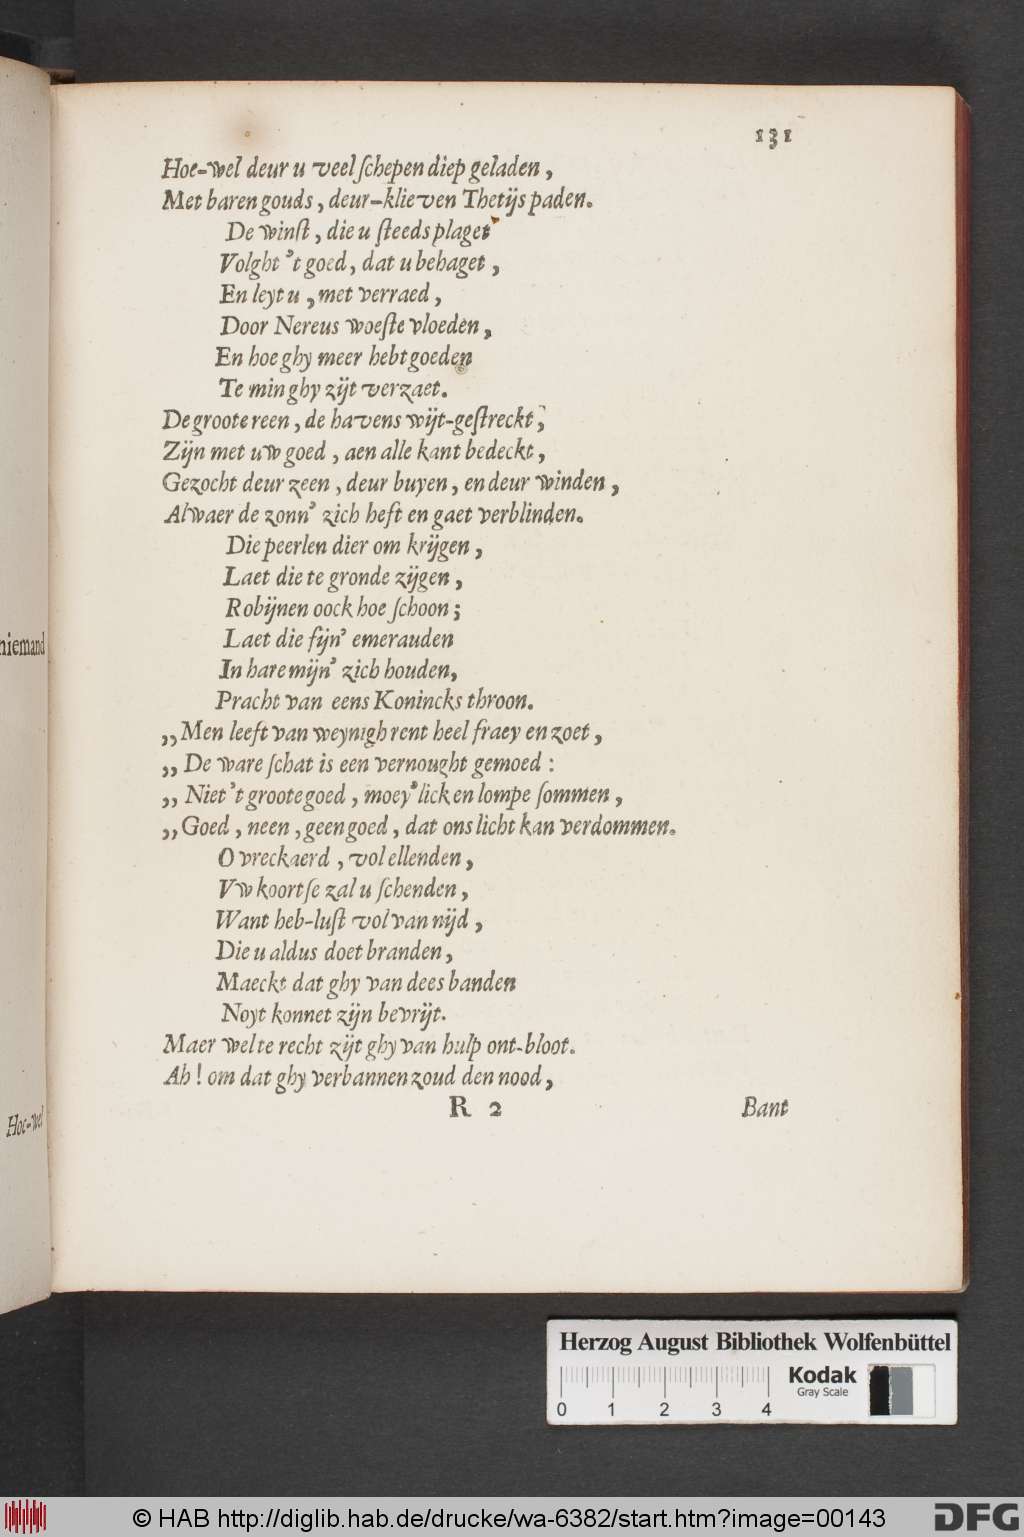 131
Hoe-wel deur u veel ſchepen diep geladen,
Met baren gouds, deur-klieven Thetijs paden.
De winſt, die u ſteeds plaget
Volght 't goed, dat u behaget,
En leyt u, met verraed,
Door Nereus woeſte vloeden,
En hoe ghy meer hebt goeden
Te min ghy zijt verzaet.
De groote reen, de havens wijt-geſtreckt,
Zijn met uw goed, aen alle kant bedeckt,
Gezocht deur zeen, deur buyen, en deur winden,
Alwaer de zonn' zich heft en gaet verblinden.
Die peerlen dier om krijgen,
Laet die te gronde zijgen,
Robijnen oock hoe ſchoon;
Laet die fijn' emerauden
In hare mijn' zich houden,
Pracht van eens Konincks throon.
,, Men leeft van weynigh rent heel fraey en zoet,
,, De ware ſchat is een vernought gemoed:
,, Niet 't groote goed, moey'lick en lompe ſommen,
,, Goed, neen, geen goed, dat ons licht kan verdommen.
O vreckaerd, vol ellenden,
Vw koortſe zal u ſchenden,
Want heb-luſt vol van nijd,
Die u aldus doet branden,
Maeckt dat ghy van dees banden
Noyt konnet zijn bevrijt.
Maer wel te recht zijt ghy van hulp ont-bloot.
Ah! om dat ghy verbannen zoud den nood,
R 2 Bant
niemand
Hoe-wel
Herzog August Bibliothek Wolfenbüttel
Kodak
Gray Scale
0 1 2 3 4
© HAB http://diglib.hab.de/drucke/wa-6382/start.htm?image=00143
DFG